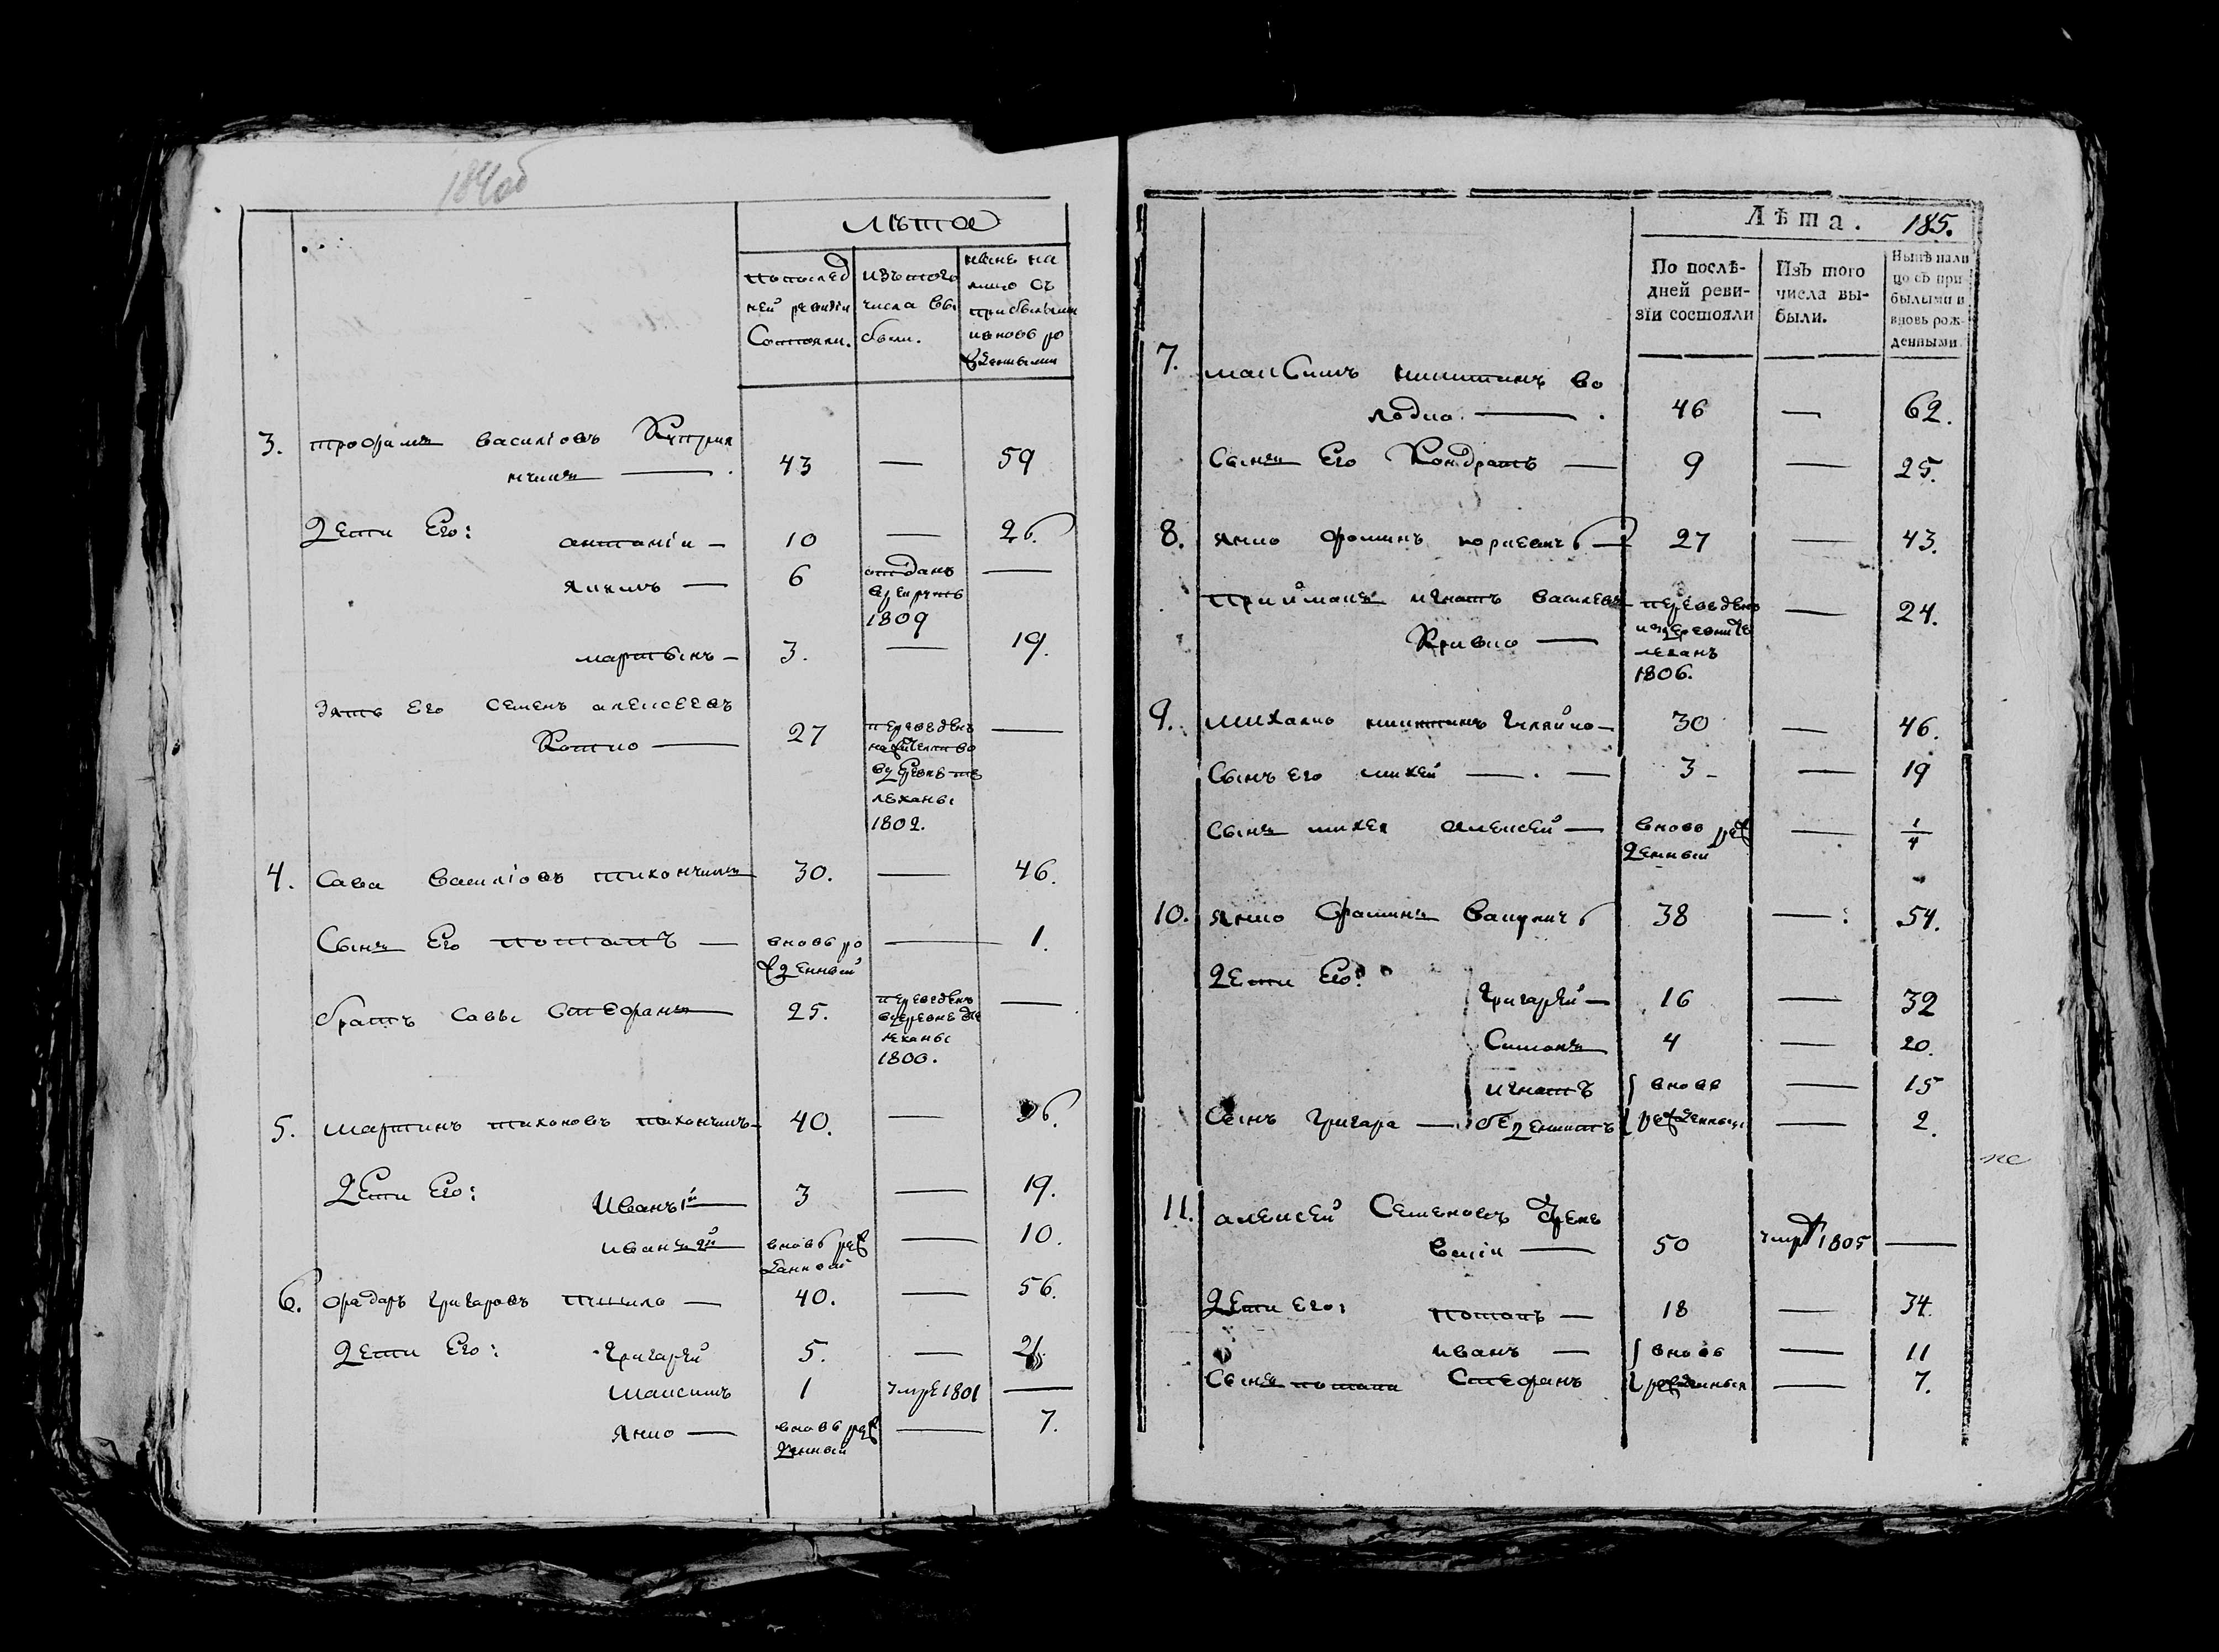 184об
Лѣта
попослед
ней ревизіи
Состояли.
изътого
числа вы
были.
ныне на
лицо съ
прибылыми
ивновь ро
жденными
3. трофимъ василіовъ Куприя
нчикъ — 43 — 59
Дети Его: антаніи — 10 — 26.
якимъ — 6 отданъ —
врекруты
1809
мартынъ — 3. — 19.
Зять Его семенъ алексеевъ
Котко — 27 переведенъ —
вдеревне те
леханы
1802.
4. Сава василіовъ тихончикъ 30. — 46.
Сынъ Его потапъ — вновь ро — 1.
жденный
братъ Савы Стефанъ — 25. переведенъ —
вдеревне те
леханы
1800.
5. мартинъ тихоновъ тихончикъ — 40. — 56.
Дети Его: Иванъ 1й — 3 — 19.
иванъ 2й — вновь рож — 10.
данной
6. фадаръ григаровъ — 40. — 56.
Дети Его: григарей 5. — 21.
максимъ 1 умре 1801 —
янко — вновь рож — 7.
денный
Лѣта. 185.
По послѣ-
дней реви-
зіи состояли
Изъ того
числа вы-
были.
Нынѣ нали
цо съ при-
былыми и
вновь рож-
денными
7. максимъ никитинъ во
лодко — 46 — 62.
Сынъ Его Кондратъ — 9 — 25.
8. янко фоминъ — 27 — 43.
Прийманъ игнатъ василевъ переведенъ — 24.
Кривко — издеревни те
леханъ
1806.
9. михалко никитинъ — 30 — 46.
Сынъ его михей — 3 — 19
Сынъ михея алексей — вновь рож — 1/4
денный
10. янко фоминъ 38 — 54.
Дети Его: григарей — 16 — 32
Симонъ 4 — 20.
игнатъ вновь — 15
Сынъ григара — рожденныи — 2.
11. алексей Семеновъ Грене
вскіи — 50 умре 1805 —
Дети его: потапъ — 18 — 34.
иванъ — вновь — 11
Сынъ потапа Стефанъ рожденныя — 7.